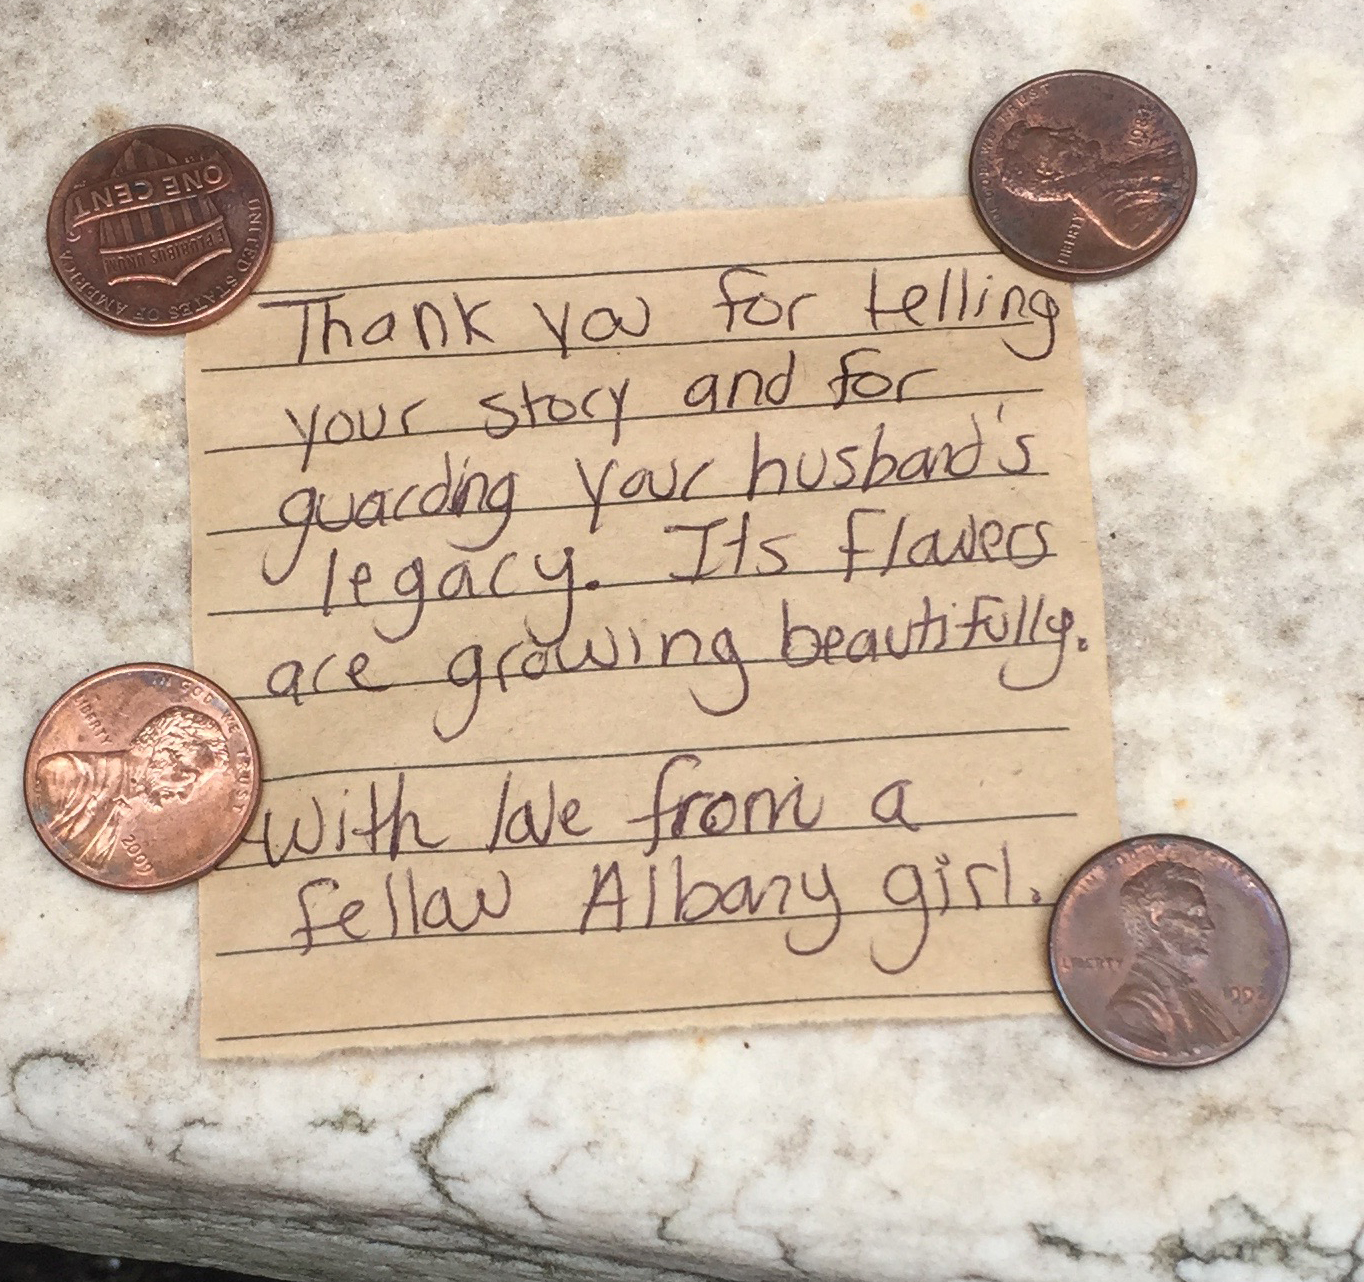 Thank you for telling
your story and for
guarding your husband's
legacy. Its flowers
are growing beautifully.
With love from a
fellow Albany girl.
ONE CENT
E PLURIBUS UNUM
UNITED STATES OF AMERICA
IN GOD WE TRUST
LIBERTY
IN GOD WE TRUST
LIBERTY
2009
LIBERTY